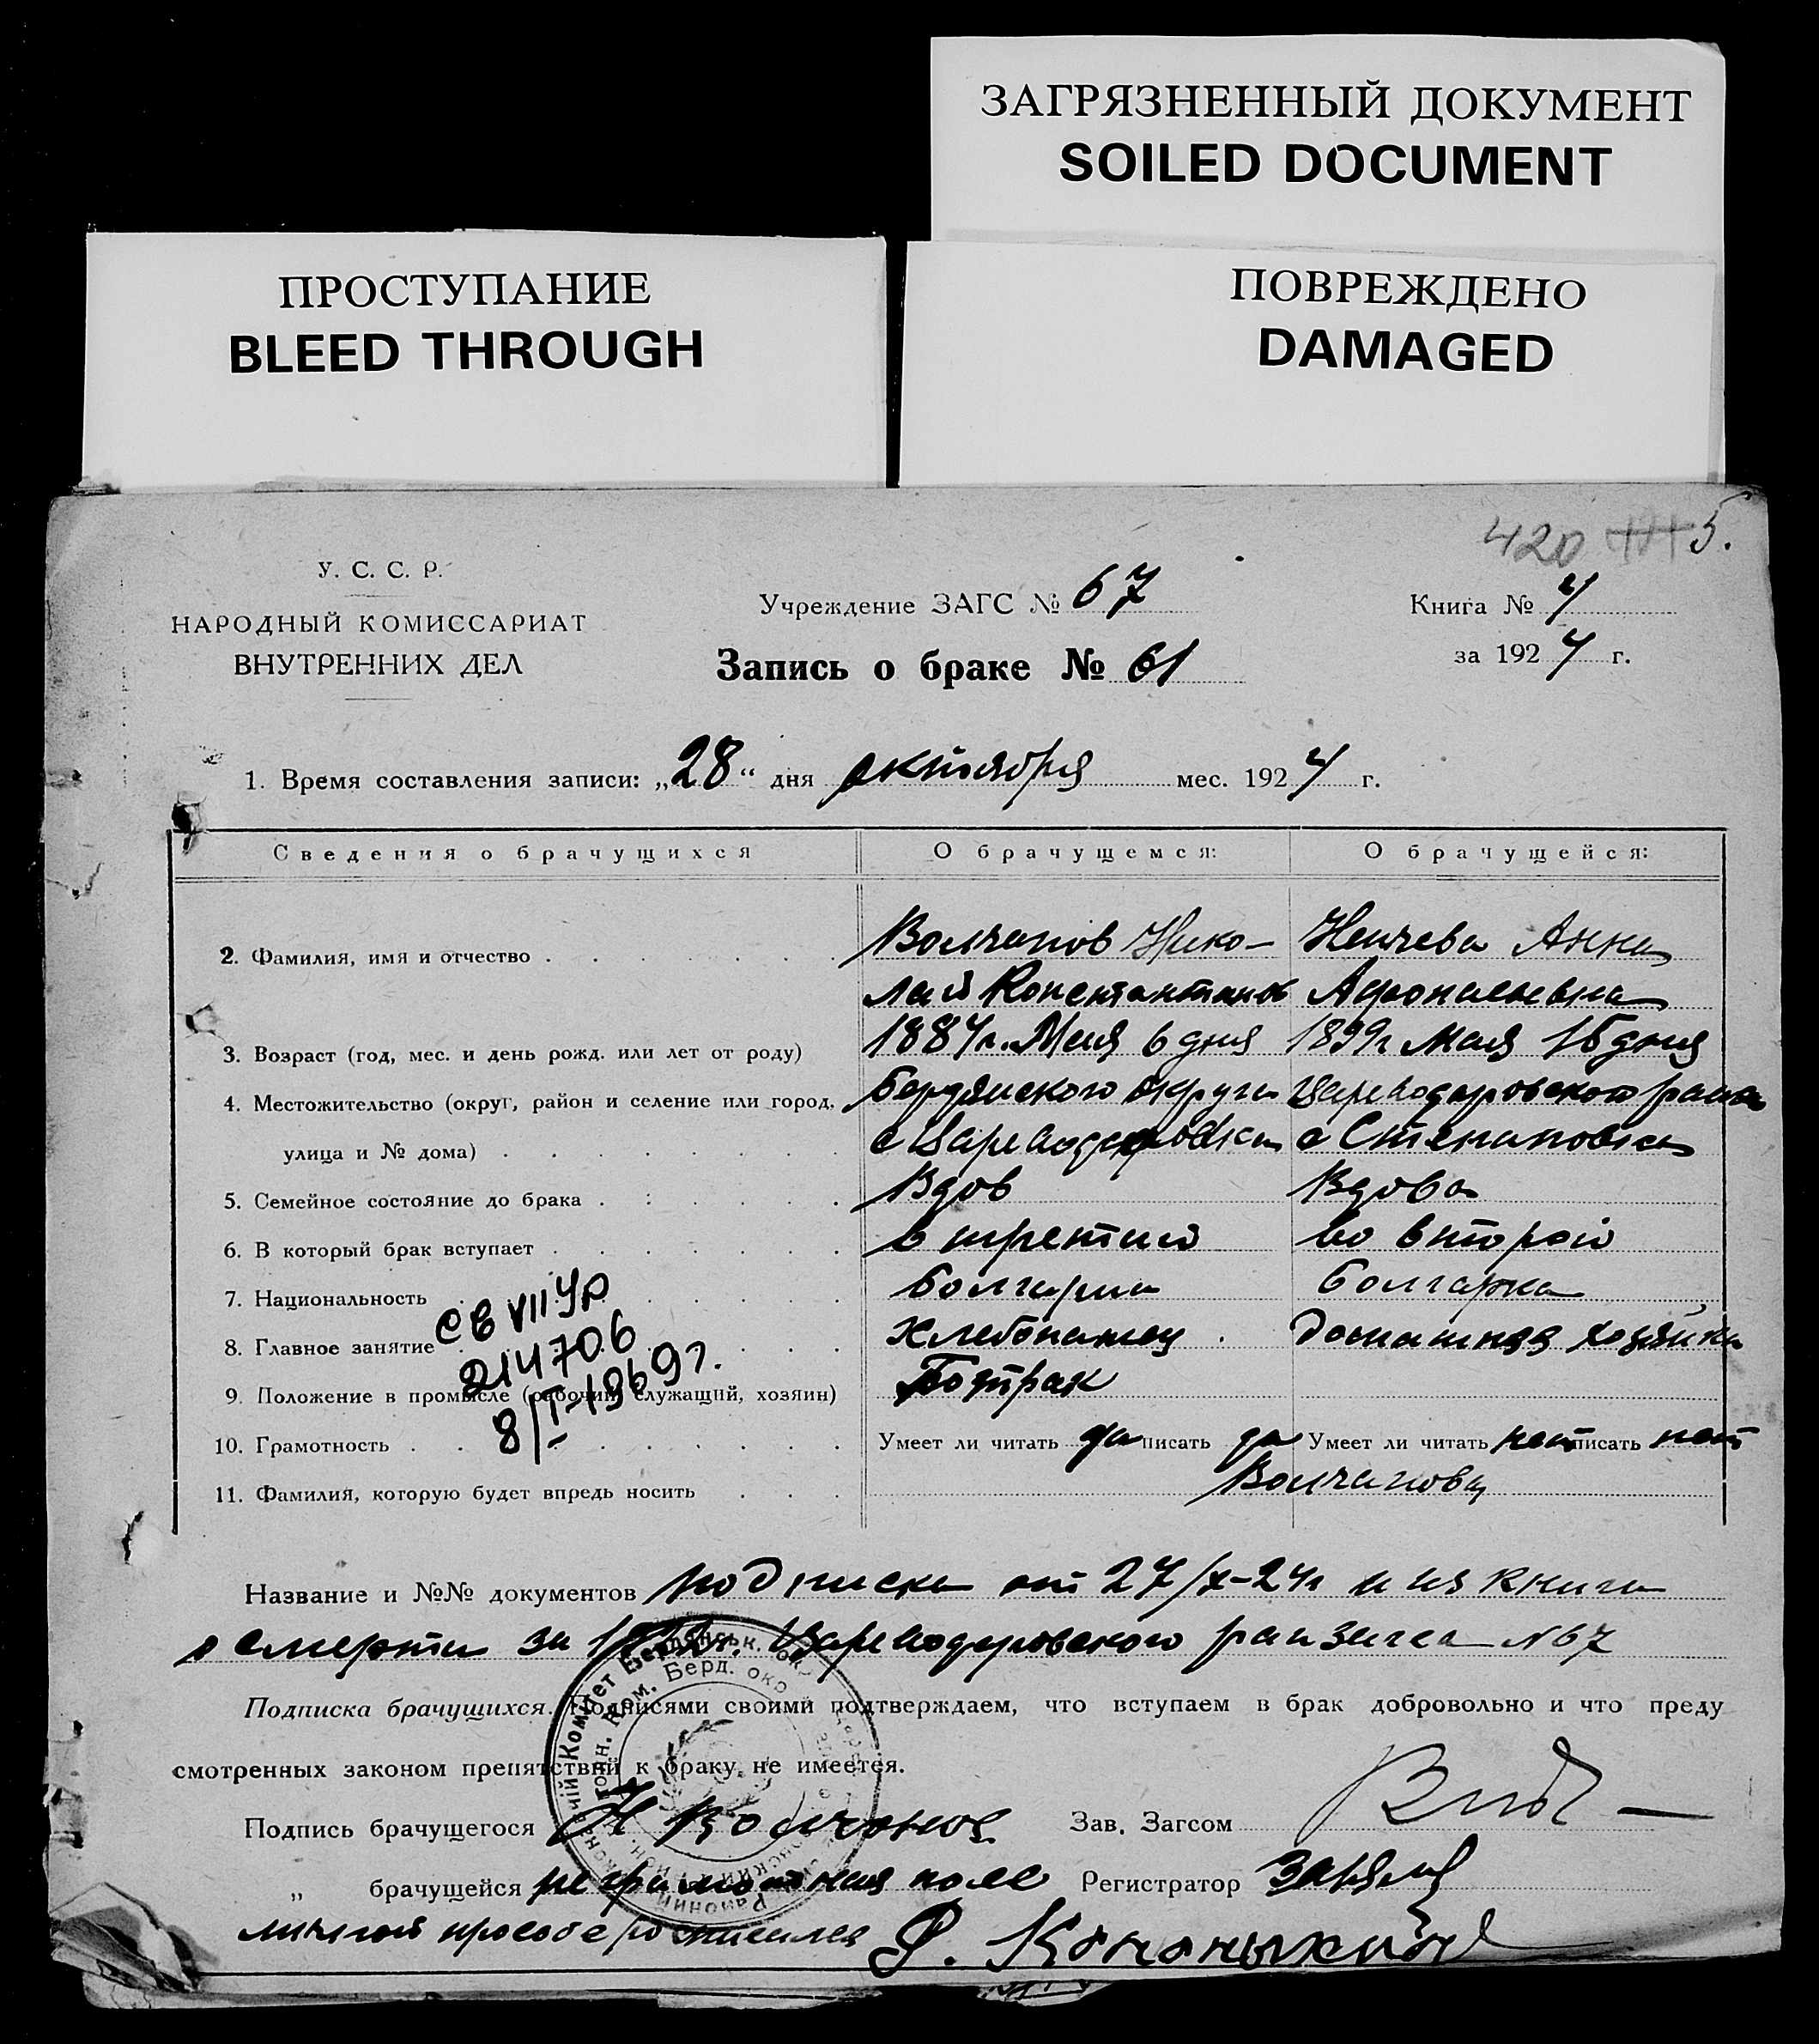 ЗАГРЯЗНЕННЫЙ ДОКУМЕНТ
SOILED DOCUMENT
ПРОСТУПАНИЕ
BLEED THROUGH
ПОВРЕЖДЕНО
DAMAGED
420 5.
У. С. С. Р.
НАРОДНЫЙ КОМИССАРИАТ
ВНУТРЕННИХ ДЕЛ
Учреждение ЗАГС № 67
Запись о браке № 61
Книга № 4
за 1924 г.
1. Время составления записи: „28“ дня октября мес. 1924 г.
Сведения о брачущихся О брачущемся: О брачущейся:
2. Фамилия, имя и отчество Волчанов Нико- Ненчева Анна
лай Константинов Афонасьевна
3. Возраст (год, мес. и день рожд. или лет от роду) 1884 г. Мая 6 дня 1899 г Мая 15 дня
4. Местожительство (округ, район и селение или город, Бердянского округа Цареводаровского района
улица и № дома) с Цареводаровка с Степановка
5. Семейное состояние до брака Вдов Вдова
6. В который брак вступает в третий во второй
7. Национальность Болгарин Болгарка
8. Главное занятие Хлебопашец Домашняя хозяйка
9. Положение в промысле (рабочий, служащий, хозяин) Батрак
10. Грамотность Умеет ли читать да писать да Умеет ли читать нет писать нет
11. Фамилия, которую будет впредь носить Волчанова
СВ VII УР
214706
8/I-1969г.
Название и №№ документов подписка от 27/X-24г и из книги
о смерти за Цареводаровского райзагса №67
Подписка брачущихся. Подписями своими подтверждаем, что вступаем в брак добровольно и что преду
смотренных законом препятствий к браку не имеется.
Подпись брачущегося Н Волчанов Зав. Загсом
„ брачущейся неграмотная по ее Регистратор
личной просьбе росписался